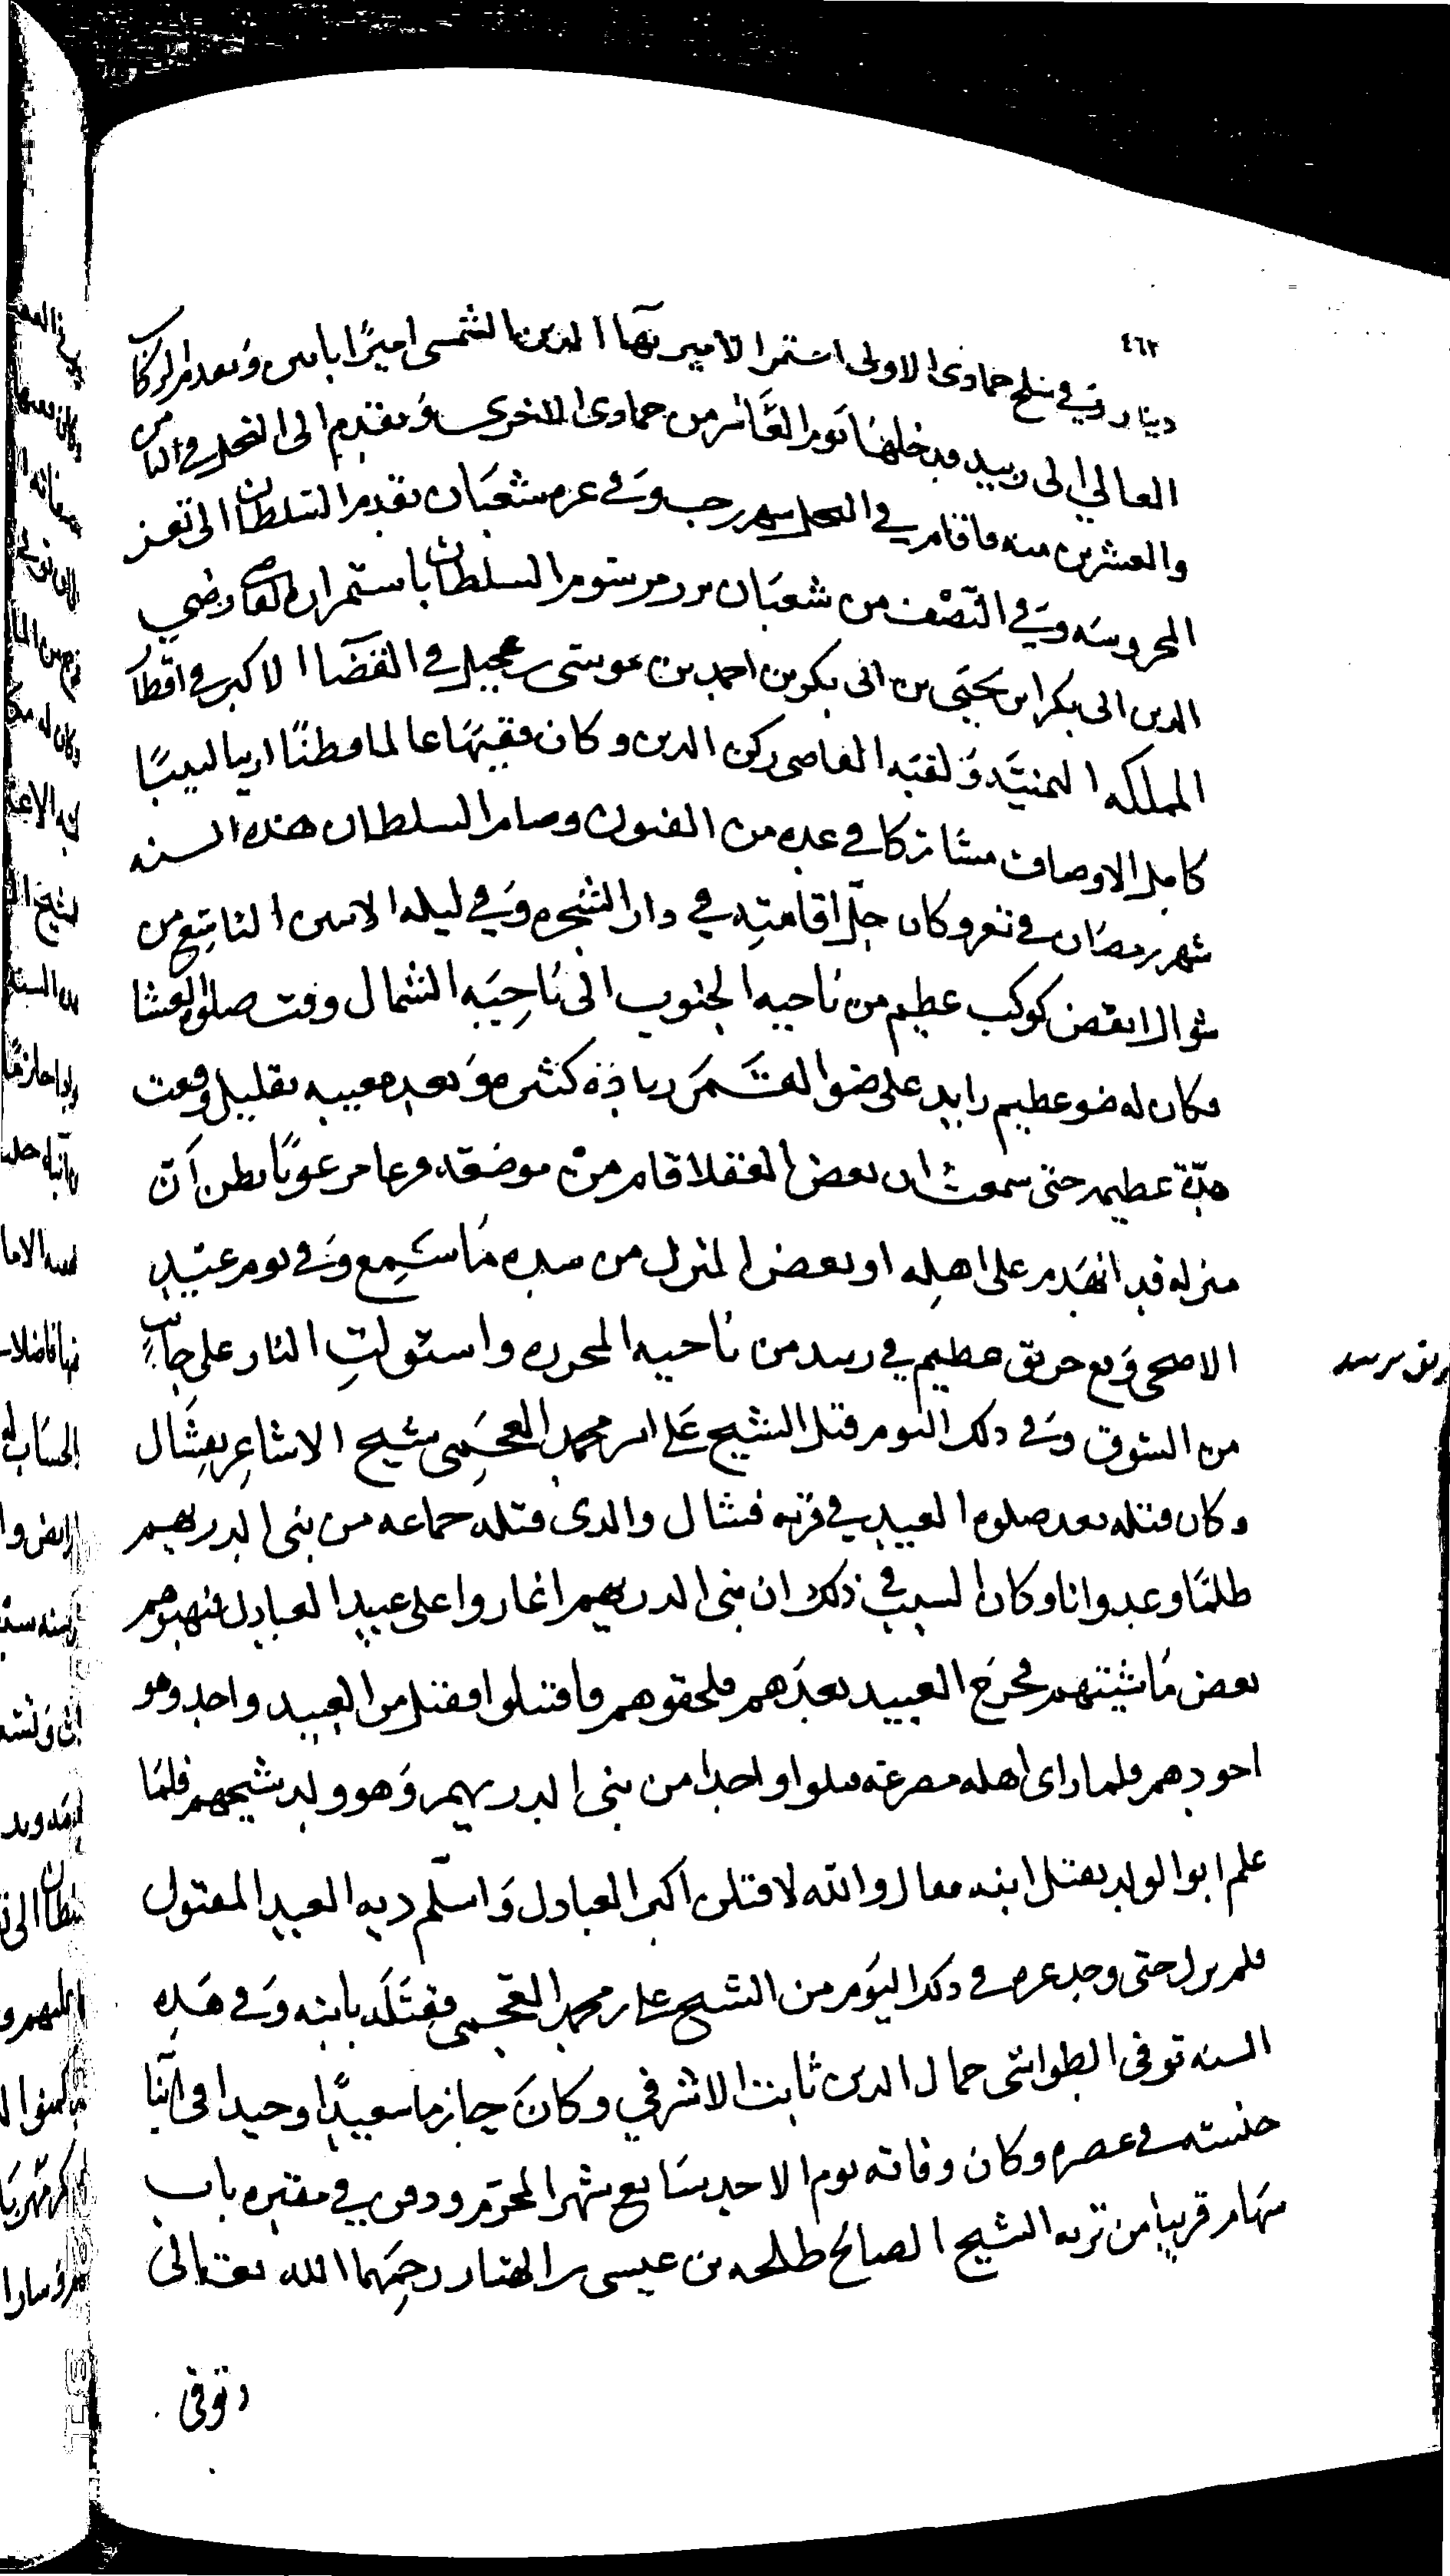 ٤٦٢
دينار وفي سلخ جمادى الاولى استمر الامير بها الدين الشمسي اميرًا بابين وتقدم الركاب
العالي الى زبيد فدخلها يوم العاشر من جمادى الاخرى وتقدم الى النخل في الثامن
والعشرين منه فاقام في النخل شهر رجب وفي غره شعبان تقدم السلطان الى تعز
المحروسه وفي النصف من شعبان برز مرسوم السلطان باستمرار القاضي رضي
الدين ابي بكر ابن يحيى بن ابي بكر بن احمد بن موسى عجيل في القضا الاكبر في اقطار
المملكه اليمنيه ولقبه القاضي ركن الدين وكان فقيها عالما فطنًا اريبا لبيبًا
كامل الاوصاف مشاركا في عده من الفنون وصام السلطان هذه السنه
شهر رمضان في تعز وكان جل اقامته في دار الشجره وفي ليله الاثنين التاسع من
شوال انقض كوكب عظيم من ناحيه الجنوب الى ناحيه الشمال وقت صلوه العشا
وكان له ضو عظيم زايد على ضو القمر زيادة كثيره وبعد مغيبه بقليل وقعت
هدّة عظيمه حتى سمعت ان بعض الغفلا قام من موضعه فزعا مرعوبًا يظن ان
منزله قد انهدم على اهله او بعض المنزل من شده ما سمع وفي يوم عيد
الاضحى وقع حريق عظيم في زبيد من ناحيه المجزره واستولت النار على جانب
من السوق وفي ذلك اليوم قتل الشيخ علي ابن محمد العجمي شيخ الاشاعر بفشال
وكان قتله بعد صلوه العيد في قريه فشال والذي قتله جماعه من بني الدريهم
ظلمًا وعدوانا وكان السبب في ذلك ان بني الدريهم اغاروا على عبيد العبادل فنهبوهم
بعض ماشيتهم فخرج العبيد بعدهم فلحقوهم فاقتتلوا فقتل من العبيد واحد وهو
اجودهم فلما راى اهله مصرعه قتلوا واحدا من بني الدريهم وهو ولد شيخهم فلما
علم ابو الولد بقتل ابنه فقال والله لاقتلن اكبر العبادل واسلم ديه العبد المقتول
فلم يزل حتى وجد غره في ذلك اليوم من الشيخ علي بن محمد العجمي فقتله بابنه وفي هذه
السنه توفي الطواشي جمال الدين ثابت الاشرفي وكان حازما سعيدًا وحيدا في ابنا
جنسه في عصره وكان وفاته يوم الاحد سابع شهر المحرم ودفن في مقبره باب
سهام قريبا من تربه الشيخ الصالح طلحه بن عيسى بن الهتار رحمهما الله تعالى
وتوفي
حريق بزبيد